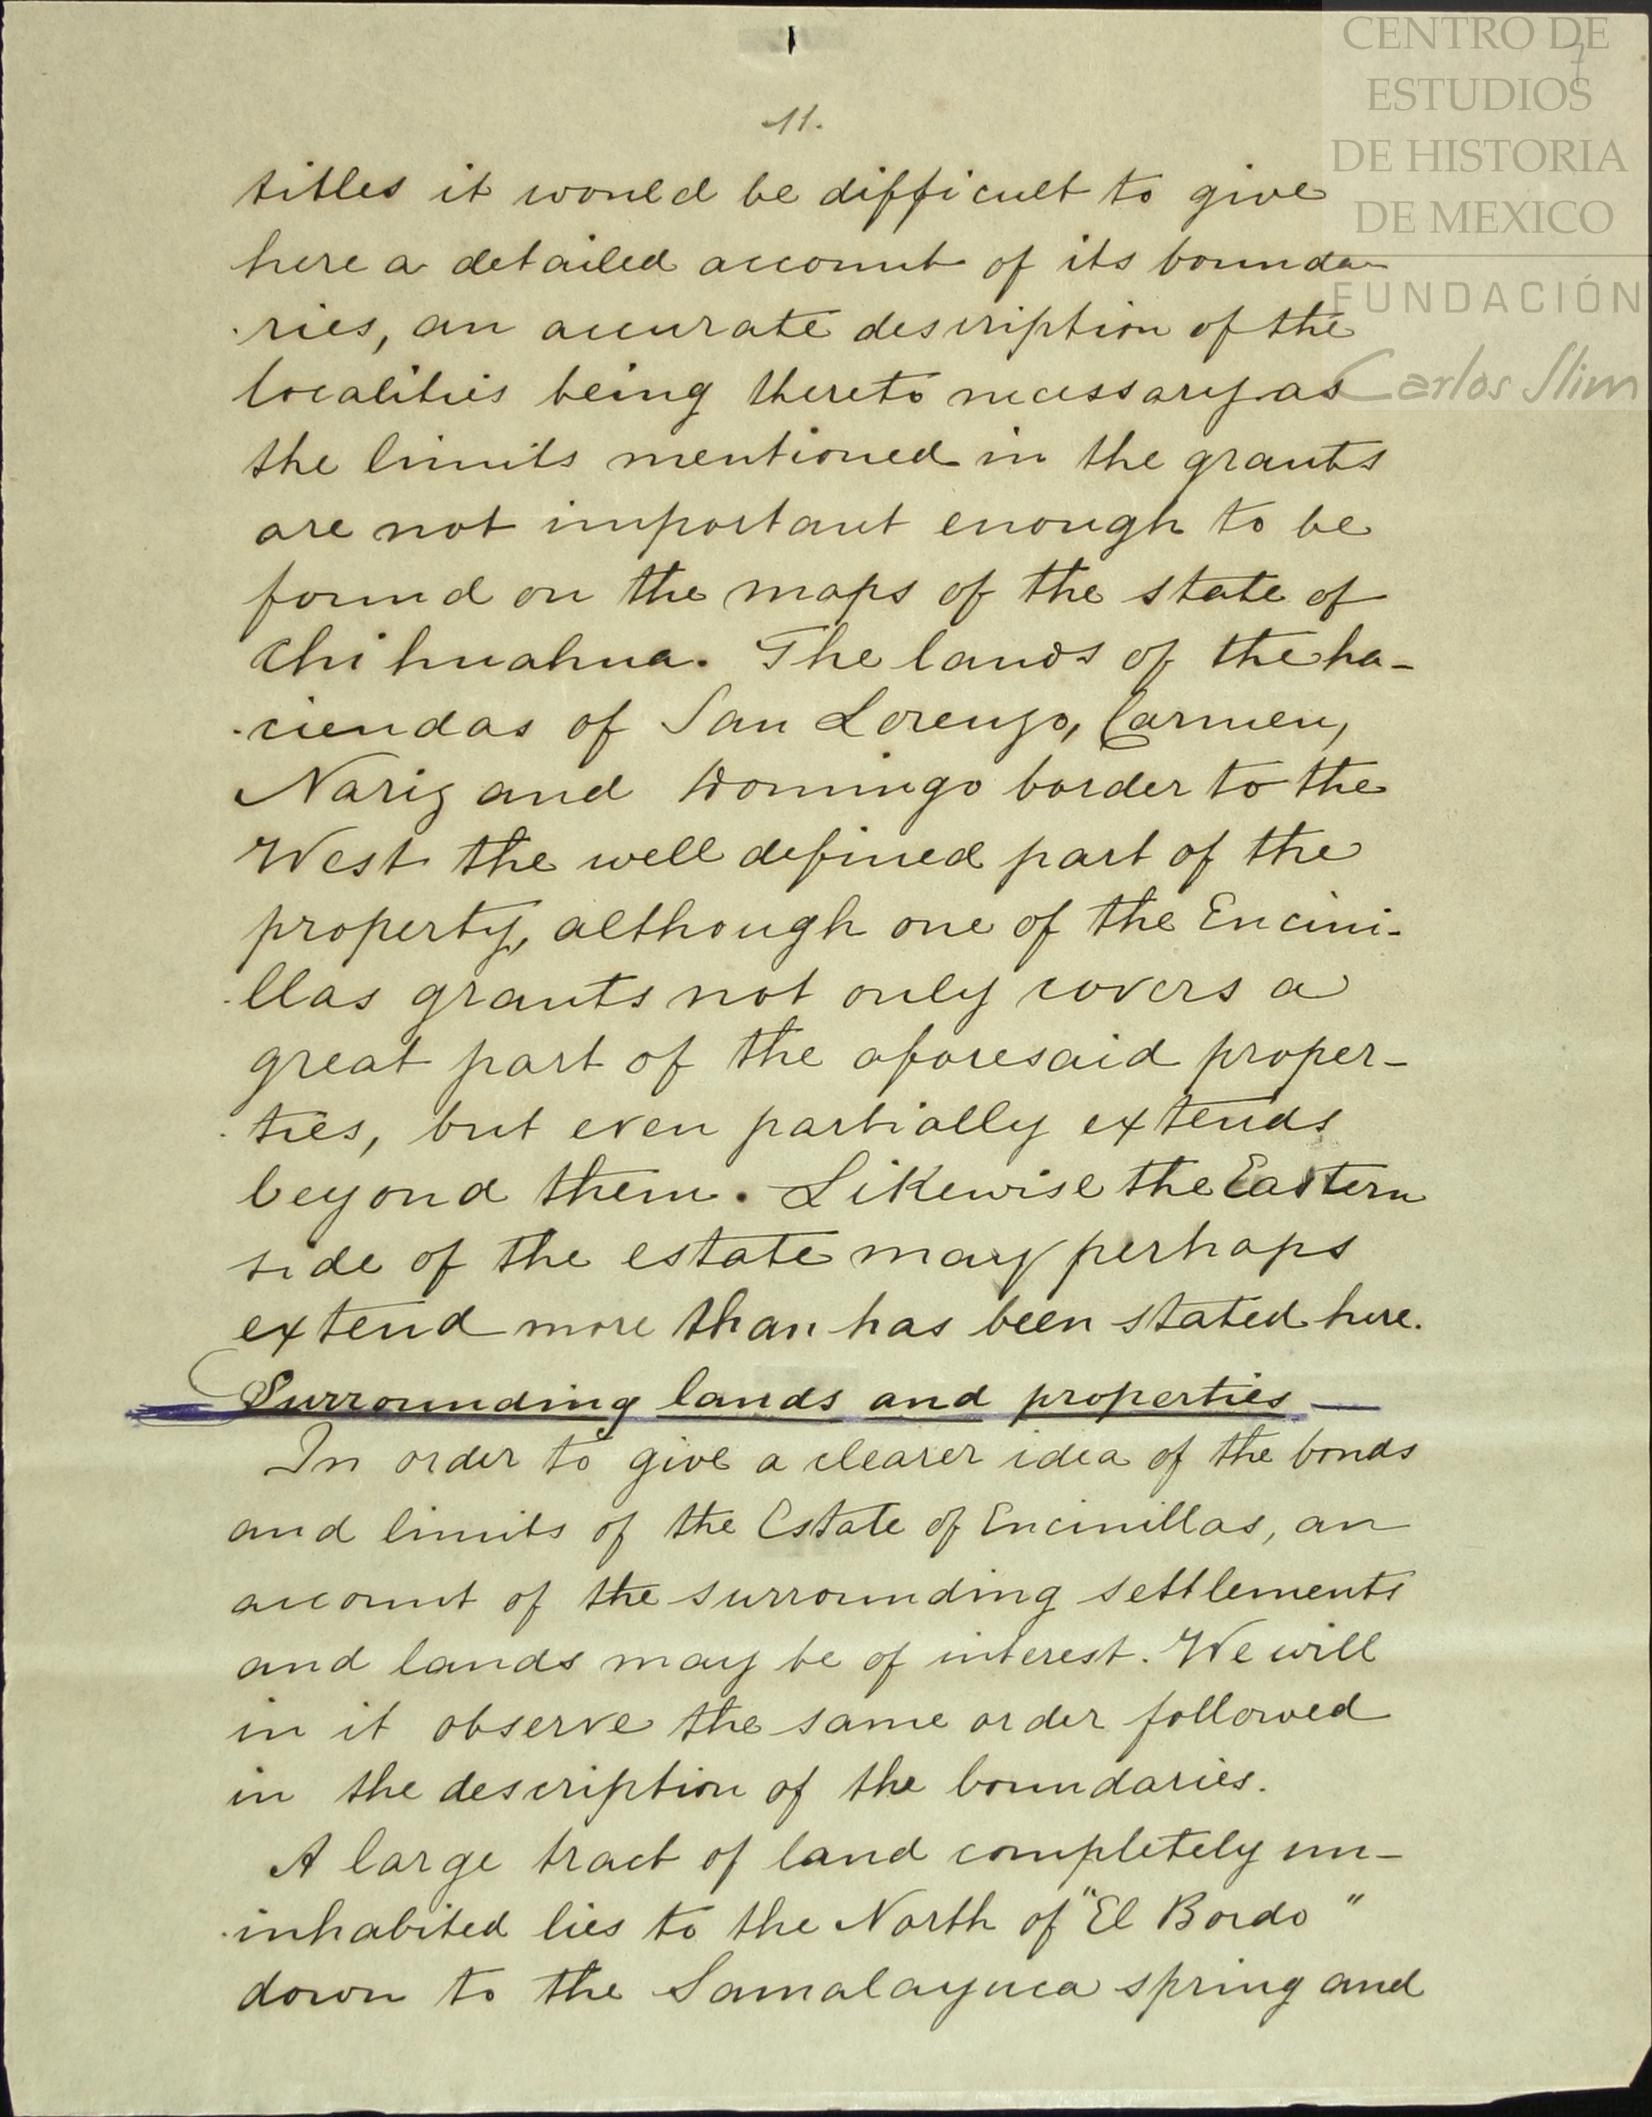 CENTRO DE
ESTUDIOS
DE HISTORIA
DE MEXICO
FUNDACIÓN
Carlos Slim
11.
titles it would be difficult to give
here a detailed account of its bounda-
-ries, an accurate description of the
localities being thereto necessary as
the limits mentioned in the grants
are not important enough to be
found on the maps of the state of
Chihuahua. The lands of the ha-
-ciendas of San Lorenzo, Carmen,
Nariz and Domingo border to the
West the well defined part of the
property, although one of the Encini-
-llas grants not only covers a
great part of the aforesaid proper-
-ties, but even partially extends
beyond them. Likewise the Eastern
side of the estate may perhaps
extend more than has been stated here.
Surrounding lands and properties —
In order to give a clearer idea of the bonds
and limits of the Estate of Encinillas, an
account of the surrounding settlements
and lands may be of interest. We will
in it observe the same order followed
in the description of the boundaries.
A large tract of land completely un-
-inhabited lies to the North of "El Bordo"
down to the Samalayuca spring and